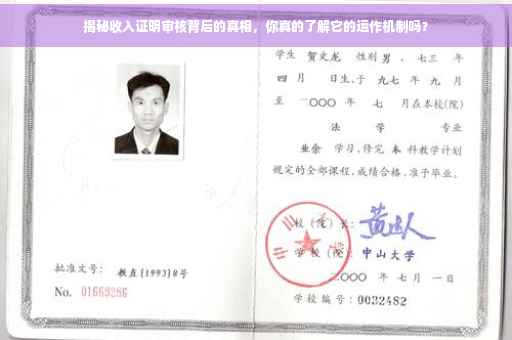 揭秘收入证明审核背后的真相，你真的了解它的运作机制吗？
学生 贺文龙 性别 男 、七三 年
四 月 日生,于 九七 年 九 月
至 二〇〇〇 年 七 月在本校(院)
法 学 专业
业余 学习,修完 本 科教学计划
规定的全部课程,成绩合格,准予毕业。
校(院)长:
学校(院): 中山大学
二〇〇〇 年 七 月 一 日
学校编号: 0032482
批准文号: 教直[1993]8号
No. 01669286